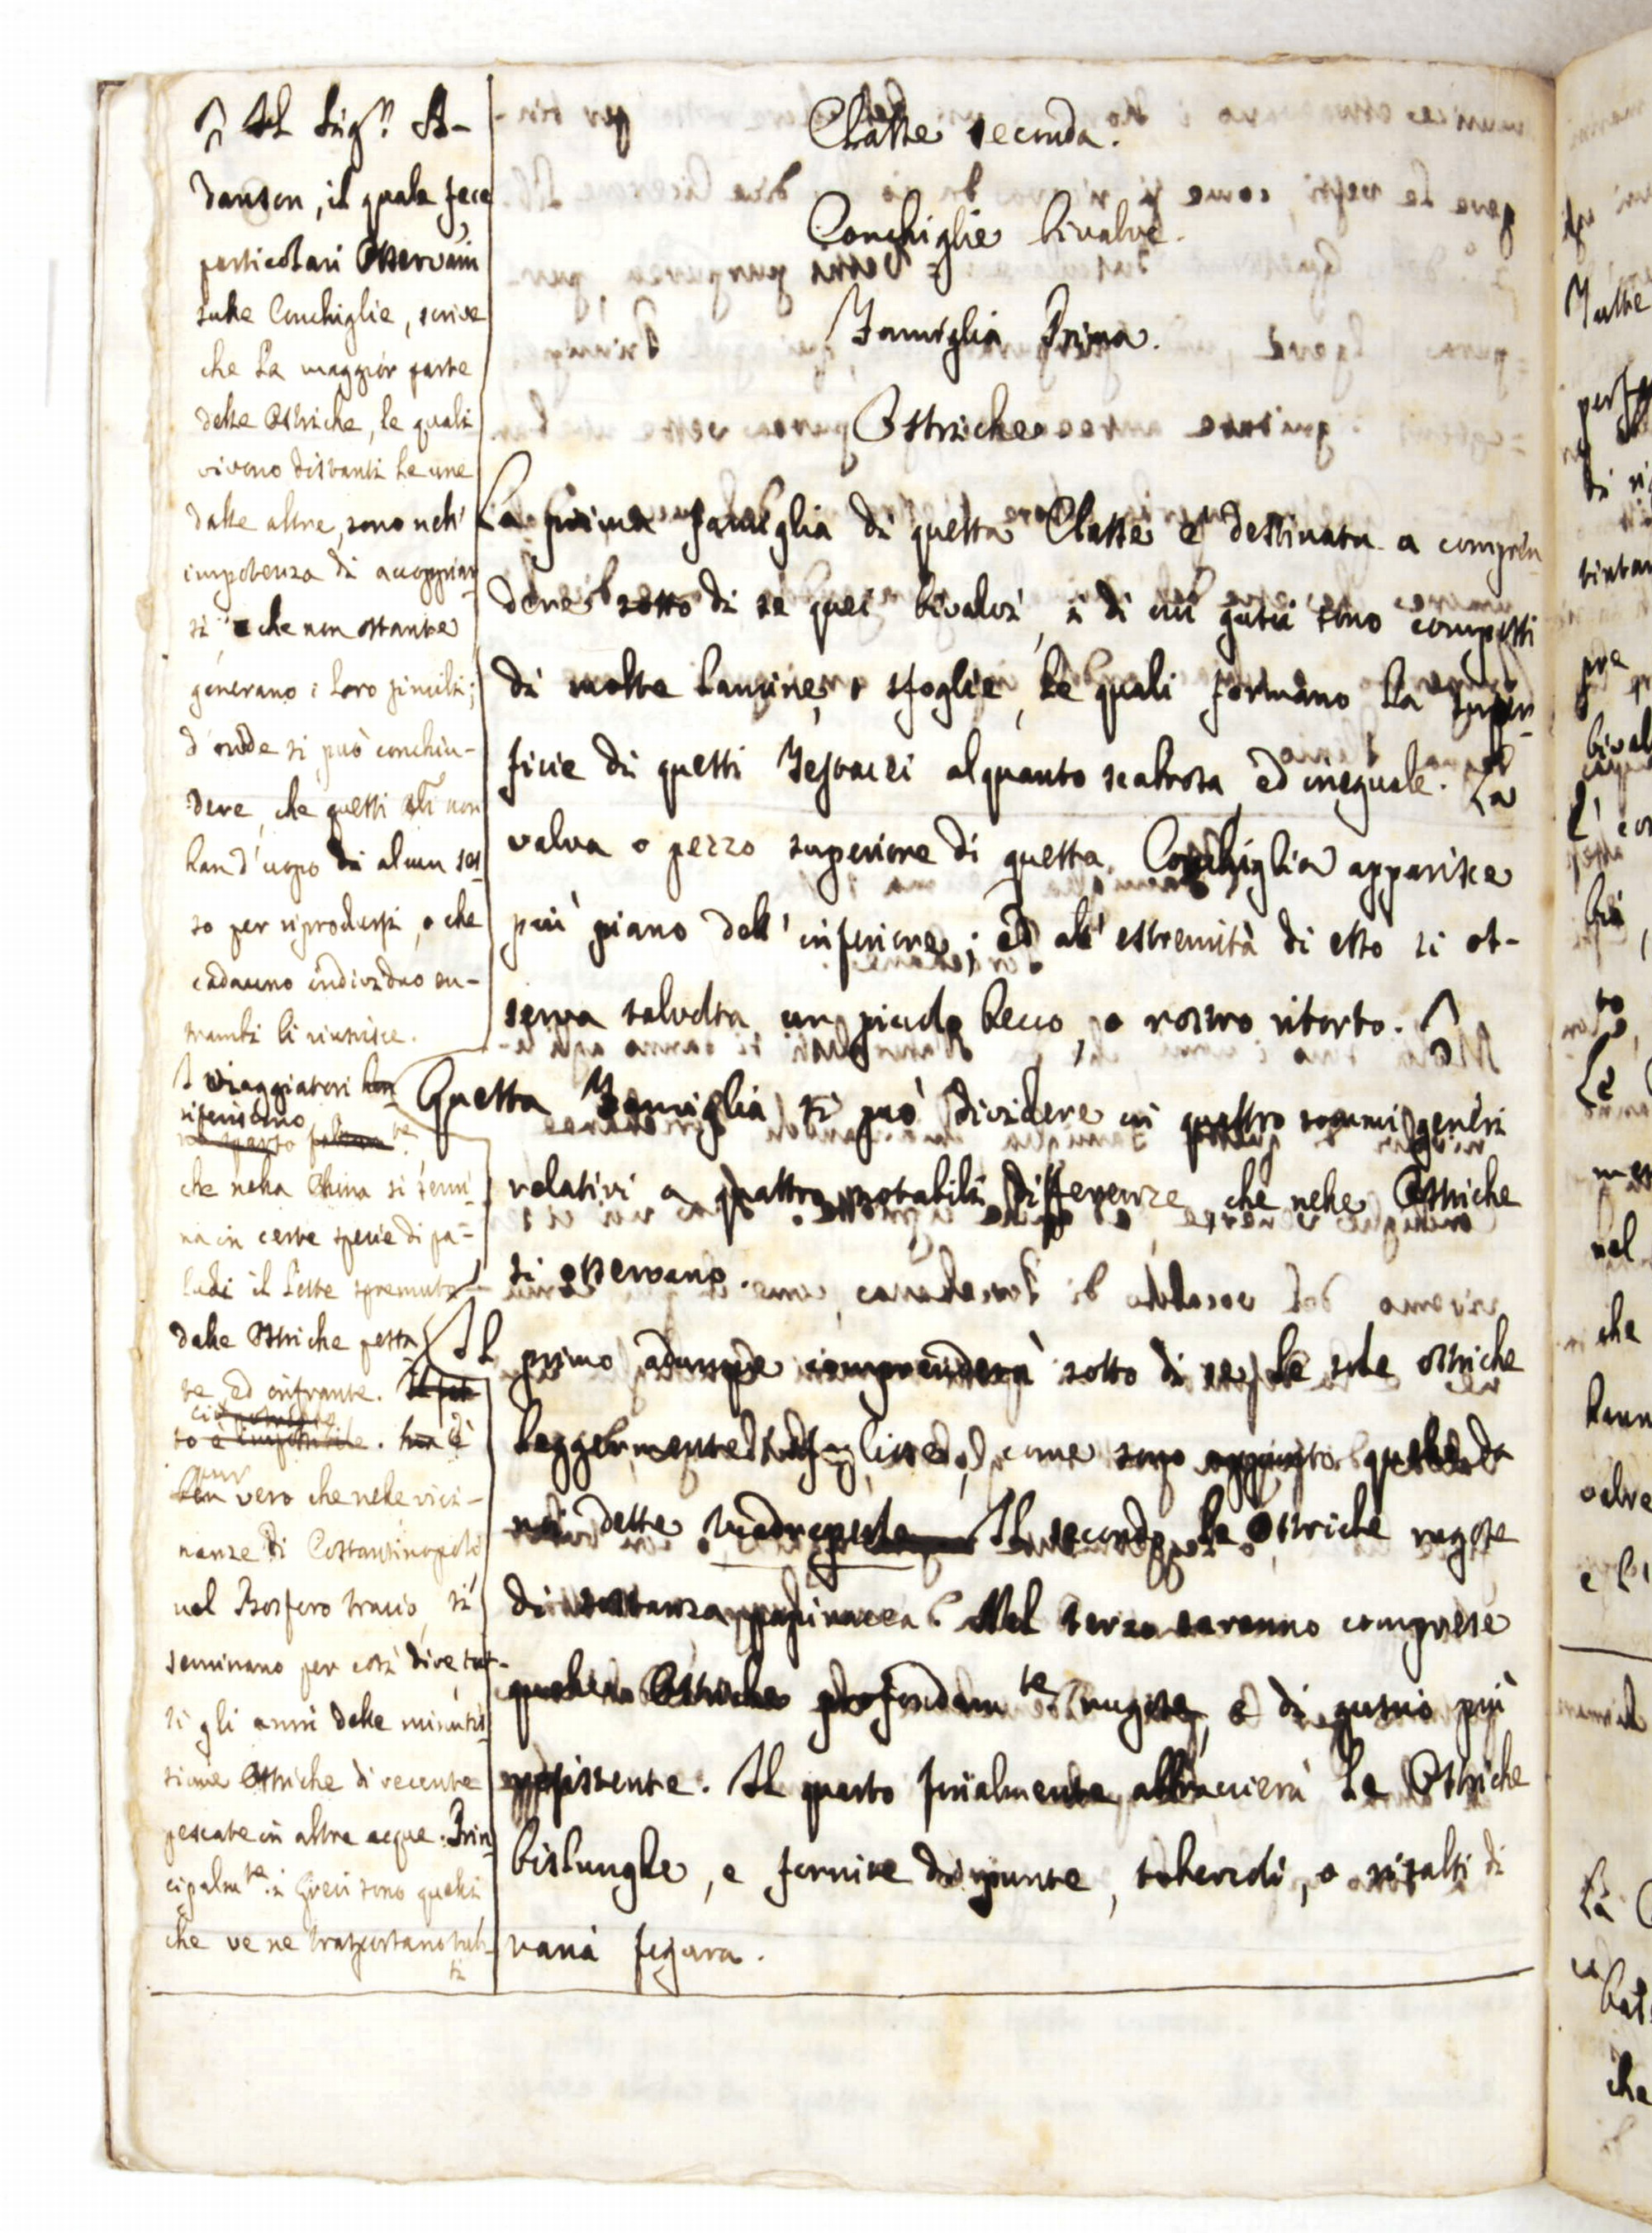 Classe seconda.
Conchiglie bivalve.
Famiglia Prima.
Ostriche
La prima famiglia di questa Classe e' destinata a compren
dere sotto di se quei bivalvi, i di cui gusci sono composti
di molte lamine, o sfoglie, le quali formano la super-
ficie di questi Testacei alquanto scabrosa, ed ineguale. La
valva o pezzo superiore di questa Conchiglia apparisce
più piano dell' inferiore; ed all' estremità di esso si os-
serva talvolta un picciolo becco, o rostro ritorto.
Questa Famiglia si può dividere in quattro sommi generi
relativi a quattro notabili differenze, che nelle Ostriche
si osservano.
Il primo adunque comprenderà sotto di se le sole ostriche
leggermente lisce, come sono appunto quelle da
noi dette Il secondo le Ostriche rugose
di sostanza papiracea. Nel terzo saranno comprese
quelle Ostriche profondam.te rugose, e di guscio più
resistente. Il quarto finalmente abbraccierà le Ostriche
bislunghe, e fornite di punte, tubercoli, o risalti di
varia figura.
Il Sig.r A-
danson, il quale fece
particolari Osservazni
sulle Conchiglie, scrive
che la maggior parte
delle Ostriche, le quali
vivono distanti le une
dalle altre, sono nell'
impotenza di accoppiar
si, e che non ostante
generano i loro simili;
d'onde si può conchiu-
dere, che questi non
han d'uopo di alcun ses
so per riprodursi, o che
cadauno individuo en-
trambi li riunisce.
I Viaggiatori
riferiscono
che nella China si semi
na in certe specie di pa-
ludi il Latte spremuto
dalle Ostriche pesta
te, ed infrante.
vero che nelle vici-
nanze di Costantinopoli
nel Bosforo tracio, si
seminano per così dire, tut-
ti gli anni delle minutis
sime Ostriche di recente
pescate in altre acque. Prin
cipalm.te i Greci sono quelli
che ve ne trasportano